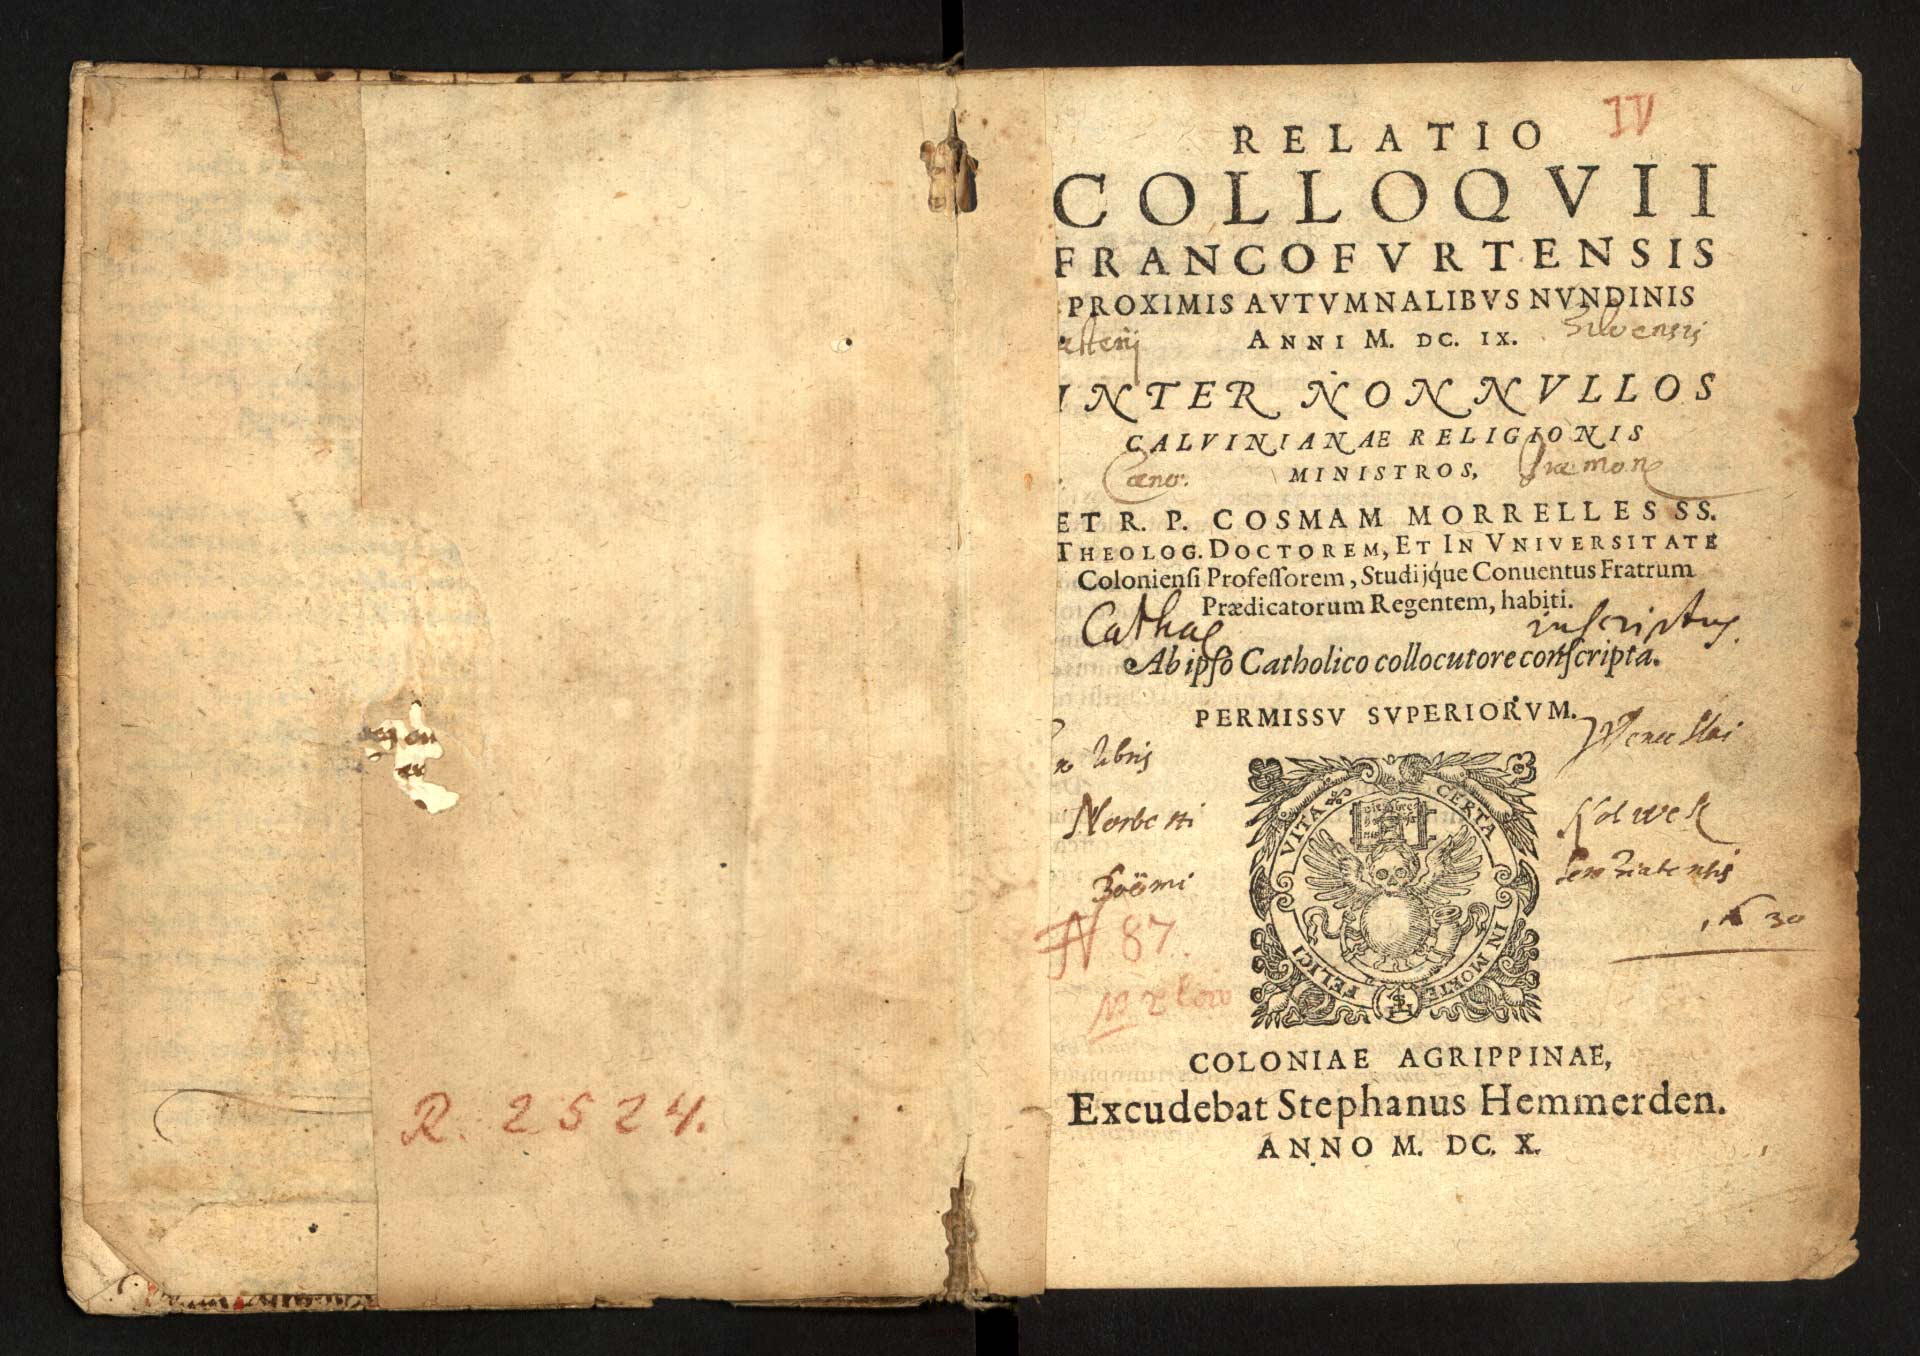 R. 2524.
IV
RELATIO
COLLOQVII
FRANCOFVRTENSIS
PROXIMIS AVTVMNALIBVS NVNDINIS
ANNI M. DC. IX.
INTER NONNVLLOS
CALVINIANAE RELIGIONIS
MINISTROS,
ET R. P. COSMAM MORRELLES SS.
THEOLOG. DOCTOREM, ET IN VNIVERSITATE
Coloniensi Professorem, Studijq́ue Conuentus Fratrum
Prædicatorum Regentem, habiti.
Catha inscriptus
Ab ipso Catholico collocutore conscripta.
PERMISSV SVPERIORVM.
libris Wenceslai
Norberti
VITA CERTA IN MORTE FELICI
N 87.
COLONIAE AGRIPPINAE,
Excudebat Stephanus Hemmerden.
ANNO M. DC. X.